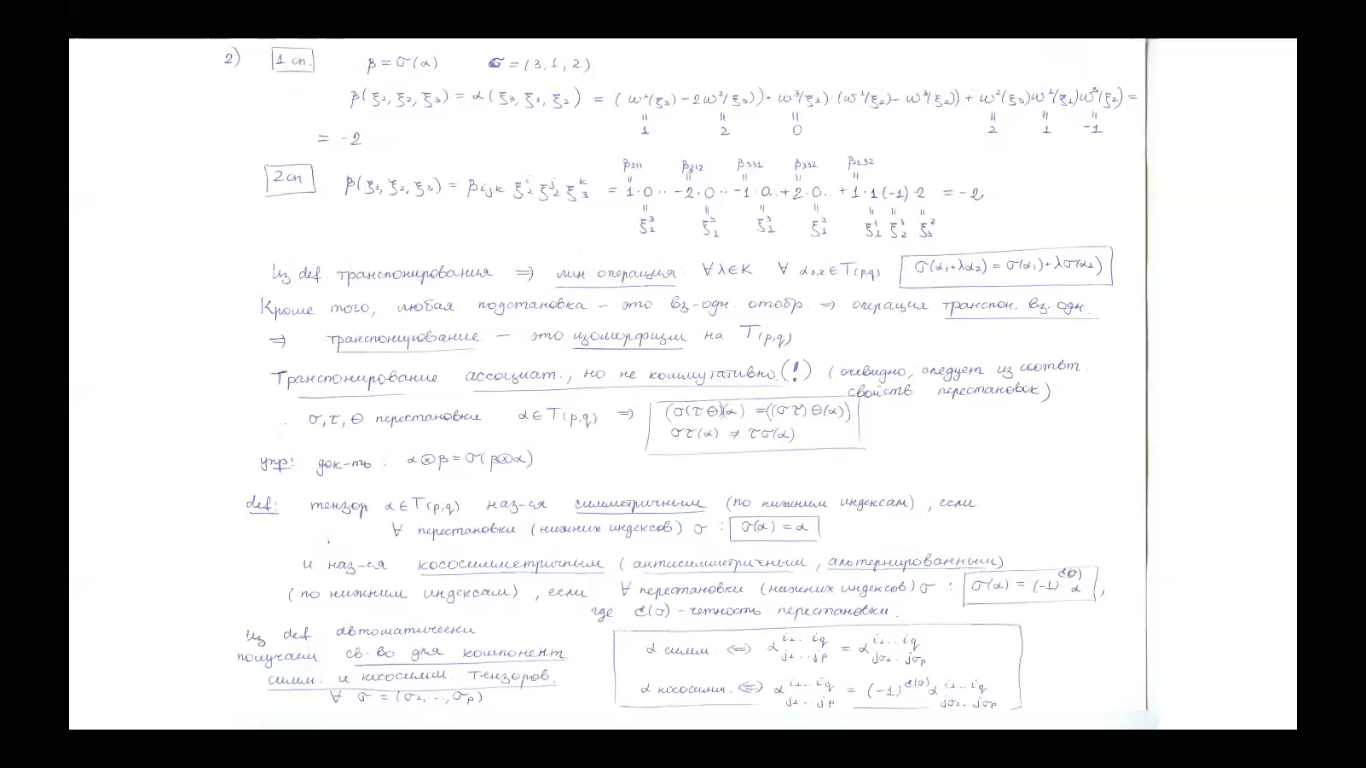 2) 1 сп. β = σ(α) σ = (3, 1, 2)
β(ξ₁, ξ₂, ξ₃) = α(ξ₃, ξ₁, ξ₂) = (ω¹(ξ₃) - 2ω²(ξ₃)) · ω³(ξ₁) (ω¹(ξ₂) - ω³(ξ₂)) + ω²(ξ₃) ω¹(ξ₁) ω³(ξ₂) =
= -2
1 2 0 2 1 -1
β₃₁₁ β₃₁₂ β₃₃₁ β₃₃₂ β₁₃₂
2 сп β(ξ₁, ξ₂, ξ₃) = βᵢⱼₖ ξ₁ⁱ ξ₂ʲ ξ₃ᵏ = 1·0·· -2·0·· -1·0·· +2·0·· +1·1(-1)·2 = -2
ξ₁³ ξ₁³ ξ₁³ ξ₁³ ξ₁¹ ξ₂³ ξ₃²
Из def. транспонирования ⇒ лин. операция. ∀ λ∈K ∀ α₁,₂∈T(p,q) σ(α₁+λα₂) = σ(α₁)+λσ(α₂)
Кроме того, любая подстановка – это вз-одн. отобр ⇒ операция транспон. вз. одн.
⇒ транспонирование – это изоморфизм на T(p,q)
Транспонирование ассоциат., но не коммутативно (!) (очевидно, следует из соответ.
свойств перестановок)
σ, τ, Θ перестановки α∈T(p,q) ⇒ (σ(τΘ)(α) = ((στ)Θ(α))
στ(α) ≠ τσ(α)
упр! док-ть: α⊗β = σ(β⊗α)
def: тензор α∈T(p,q) наз-ся симметричным (по нижним индексам), если
∀ перестановки (нижних индексов) σ : σ(α) = α
и наз-ся кососимметричным (антисимметричным, альтернированным)
(по нижним индексам), если ∀ перестановки (нижних индексов) σ : σ(α) = (-1)^ε(σ) α ,
где ε(σ) - четность перестановки.
Из def автоматически
получаем св-во для компонент
симм. и кососимм. тензоров.
∀ σ = (σ₁, .., σₚ)
α симм. ⇔ α^{i₁...i_q}_{j₁...j_p} = α^{i₁...i_q}_{jσ₁...jσ_p}
α кососимм. ⇔ α^{i₁...i_q}_{j₁...j_p} = (-1)^ε(σ) α^{i₁...i_q}_{jσ₁...jσ_p}